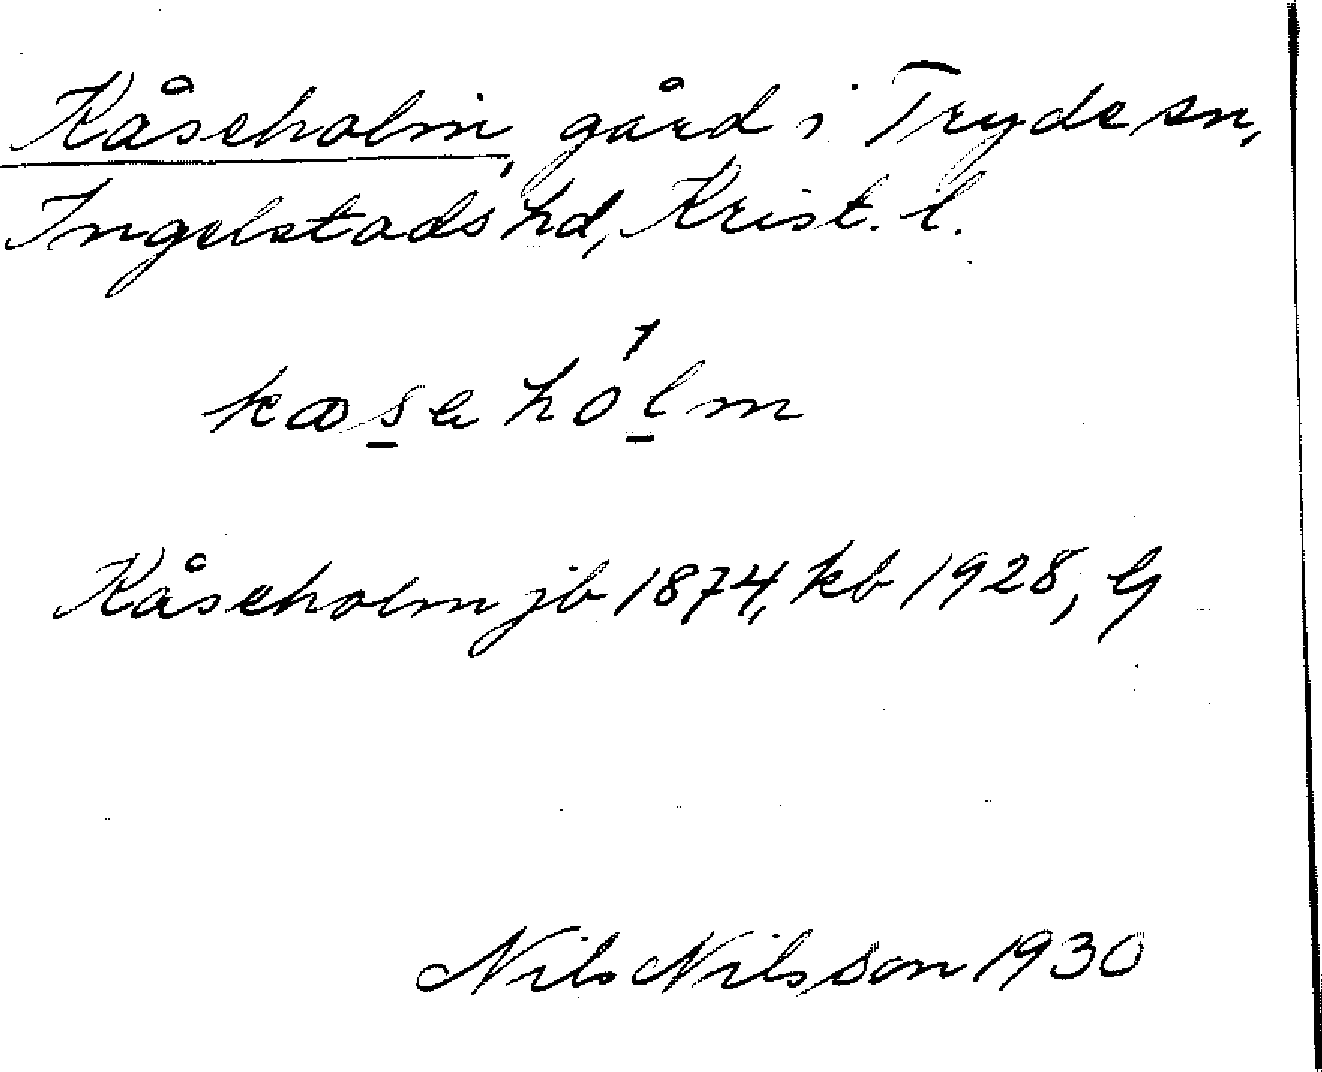 Kåseholm, gård i Tryde sn,
Ingelstads hd, Krist. l.
Kåseholm jb 1874, kb 1928, G
Nils Nilsson 1930